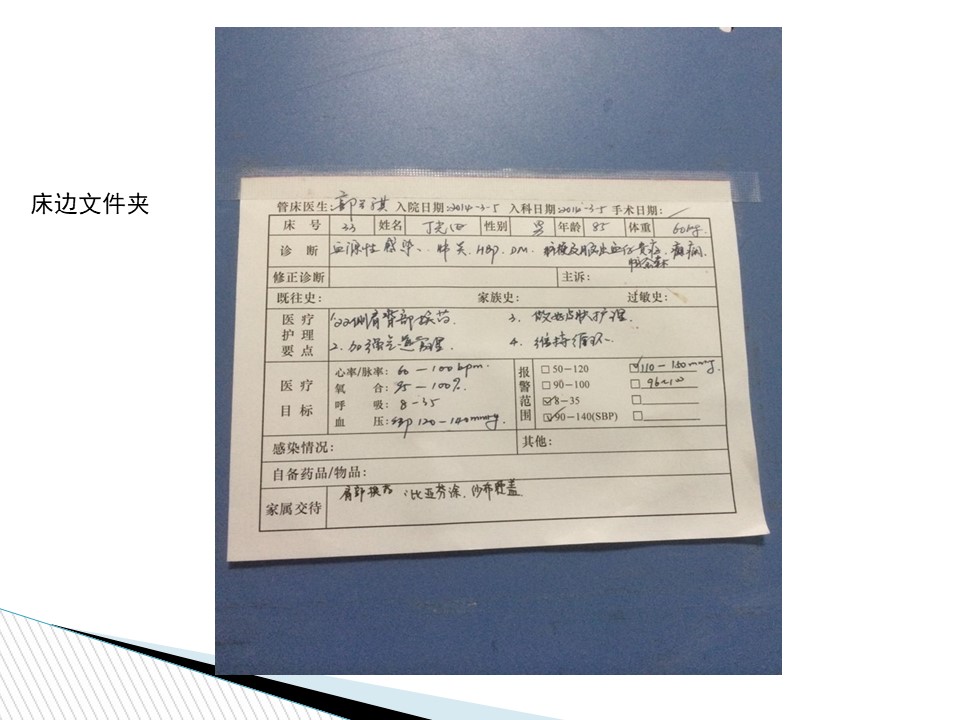 床边文件夹
管床医生: 入院日期:2014-3-5 入科日期:2014-3-5 手术日期: /
床 号 33 姓名 性别 男 年龄 85 体重 60kg.
诊 断 血源性感染、肺炎. HBP. DM. 癫痫.
修正诊断 主诉:
既往史: 家族史: 过敏史:
医 疗 护 理 要 点
1. 侧肩背部换药. 3. 做好点状护理.
2. 加强管理. 4. 维持循环.
医 疗 目 标
心率/脉率: 60 — 100 bpm.
氧 合: 95 — 100%.
呼 吸: 8 - 35
血 压: SBP 120-140mmHg.
报警范围
☐ 50-120 ☑
☐ 90-100 ☐ 96~100
☑ 8-35 ☐
☑ 90-140(SBP) ☐
感染情况: 其他:
自备药品/物品:
家属交待 肩部换药:比亚芬涂,纱布覆盖